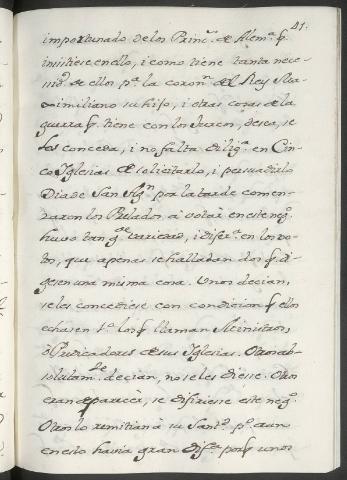 41.
importunado de los Princ.s de Alem.a q.
insistiese en ello, i como tiene tanta nece-
sid.d de ellos p.a la coron.n del Rey Ma-
ximiliano su hijo, i otras cosas de la
guerra q. tiene con los desea, se
les conceda, i no falta dilig.a en Cin-
co Iglesias de solicitarlo, i persuadirlo
Dia de San Ag.n por la tarde comen-
zaron los Prelados à votar en este neg.o
huvo tan g.de variedad, i difer.a en los vo-
tos, que apenas se hallaban dos q. di-
gesen una misma cosa. Unos decian,
se les concediese con condicion q. ellos
echasen 1.o los q. llaman Ministros,
ò Predicadores de sus Iglesias. Otros ab-
solutam.te decian, no se les diese. Otros
eran de parecer, se difiriese este neg.o
Otros lo remitian à su Sant.d p.o aun
en esto havia gran dif.a porq. unos